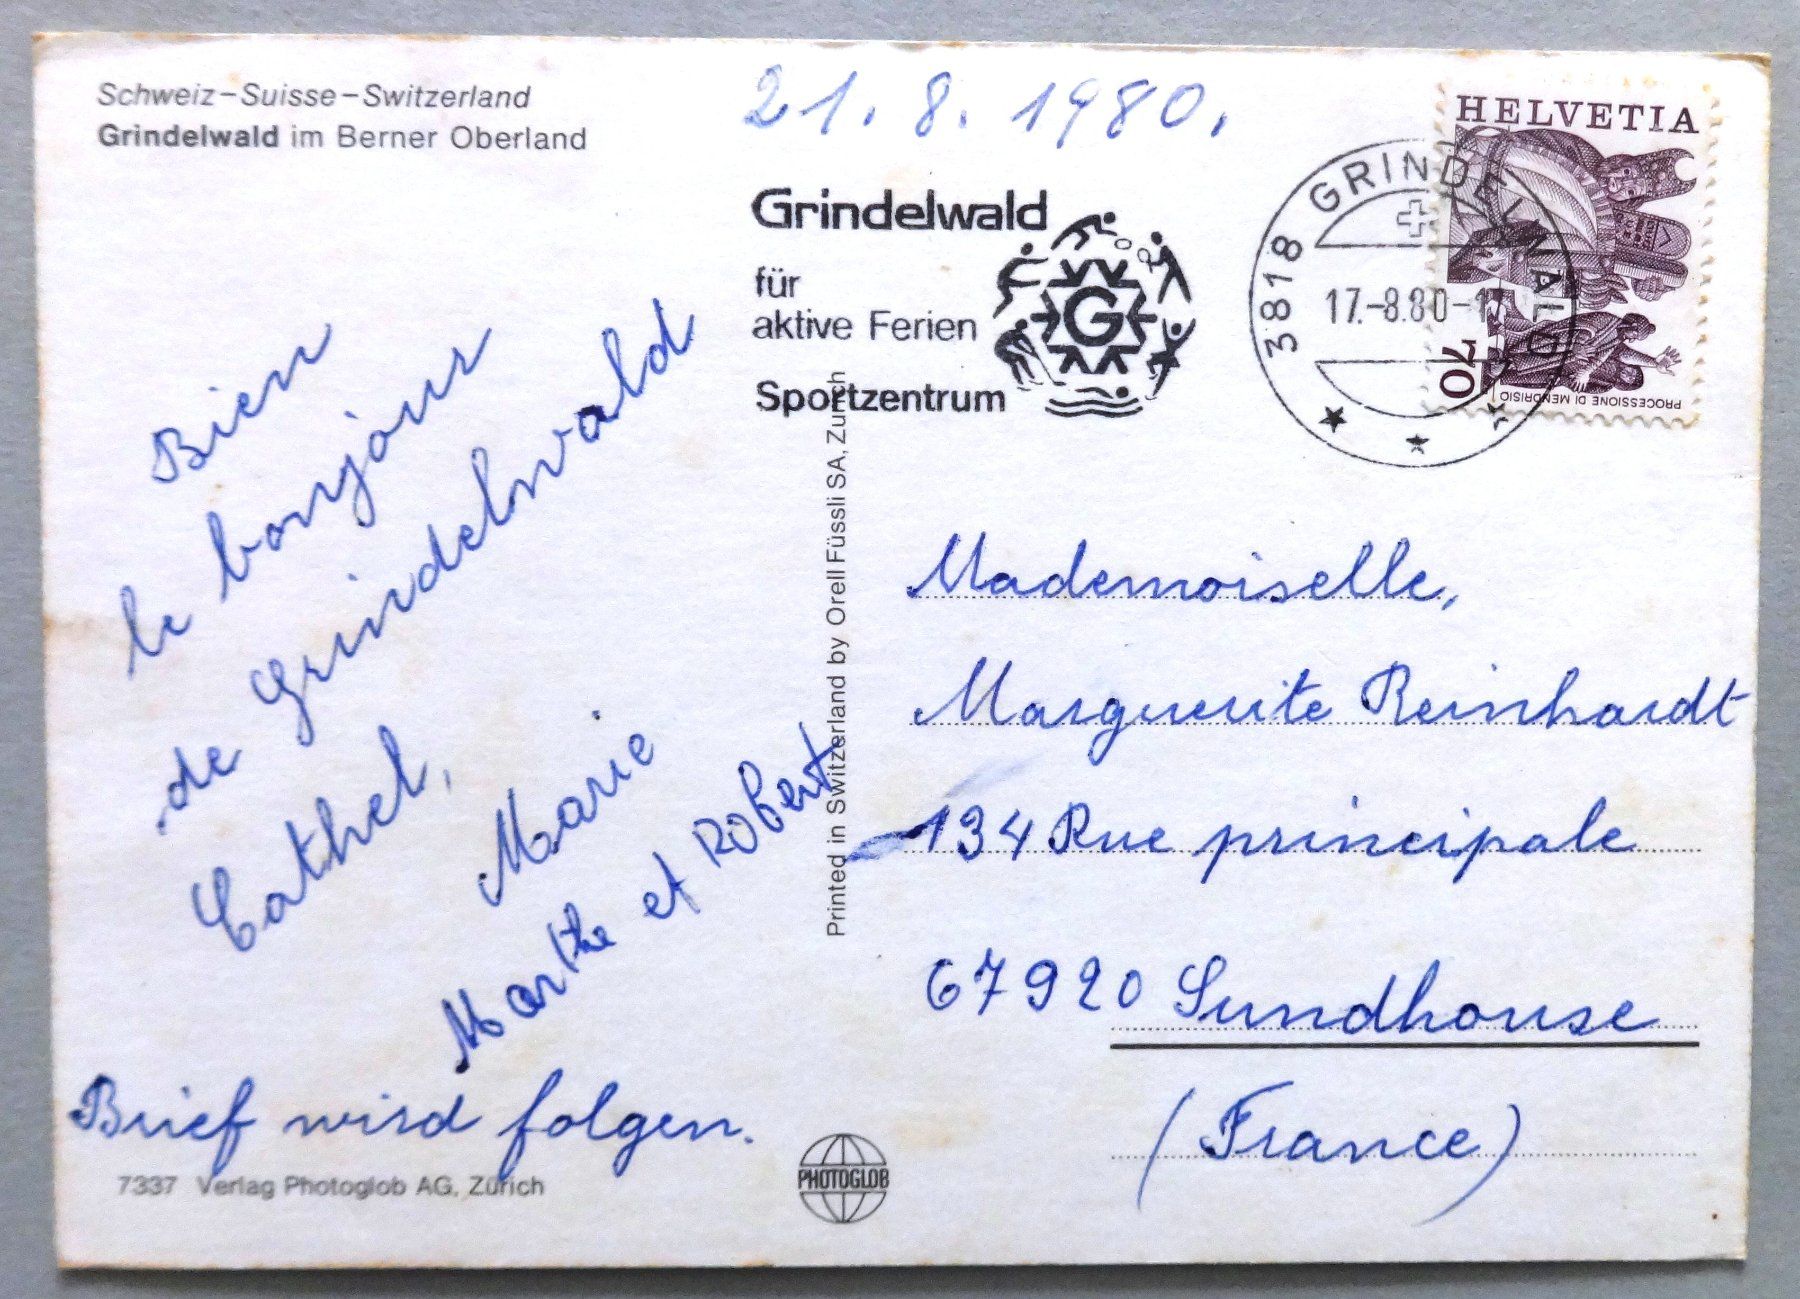 Schweiz-Suisse-Switzerland
Grindelwald im Berner Oberland
21. 8. 1980.
Grindelwald
für
aktive Ferien
Sportzentrum
G
3818 GRINDELWALD
17.-8.80-1
HELVETIA
70
PROCESSIONE DI MENDRISIO
Bien
le bonjour
de Grindelwald
Cathel,
Marie
Marthe et Robert
Brief wird folgen.
7337 Verlag Photoglob AG, Zürich
PHOTOGLOB
Printed in Switzerland by Orell Füssli SA, Zurich
Mademoiselle,
Marguerite Reinhardt
134 Rue principale
67920 Sundhouse
(France)